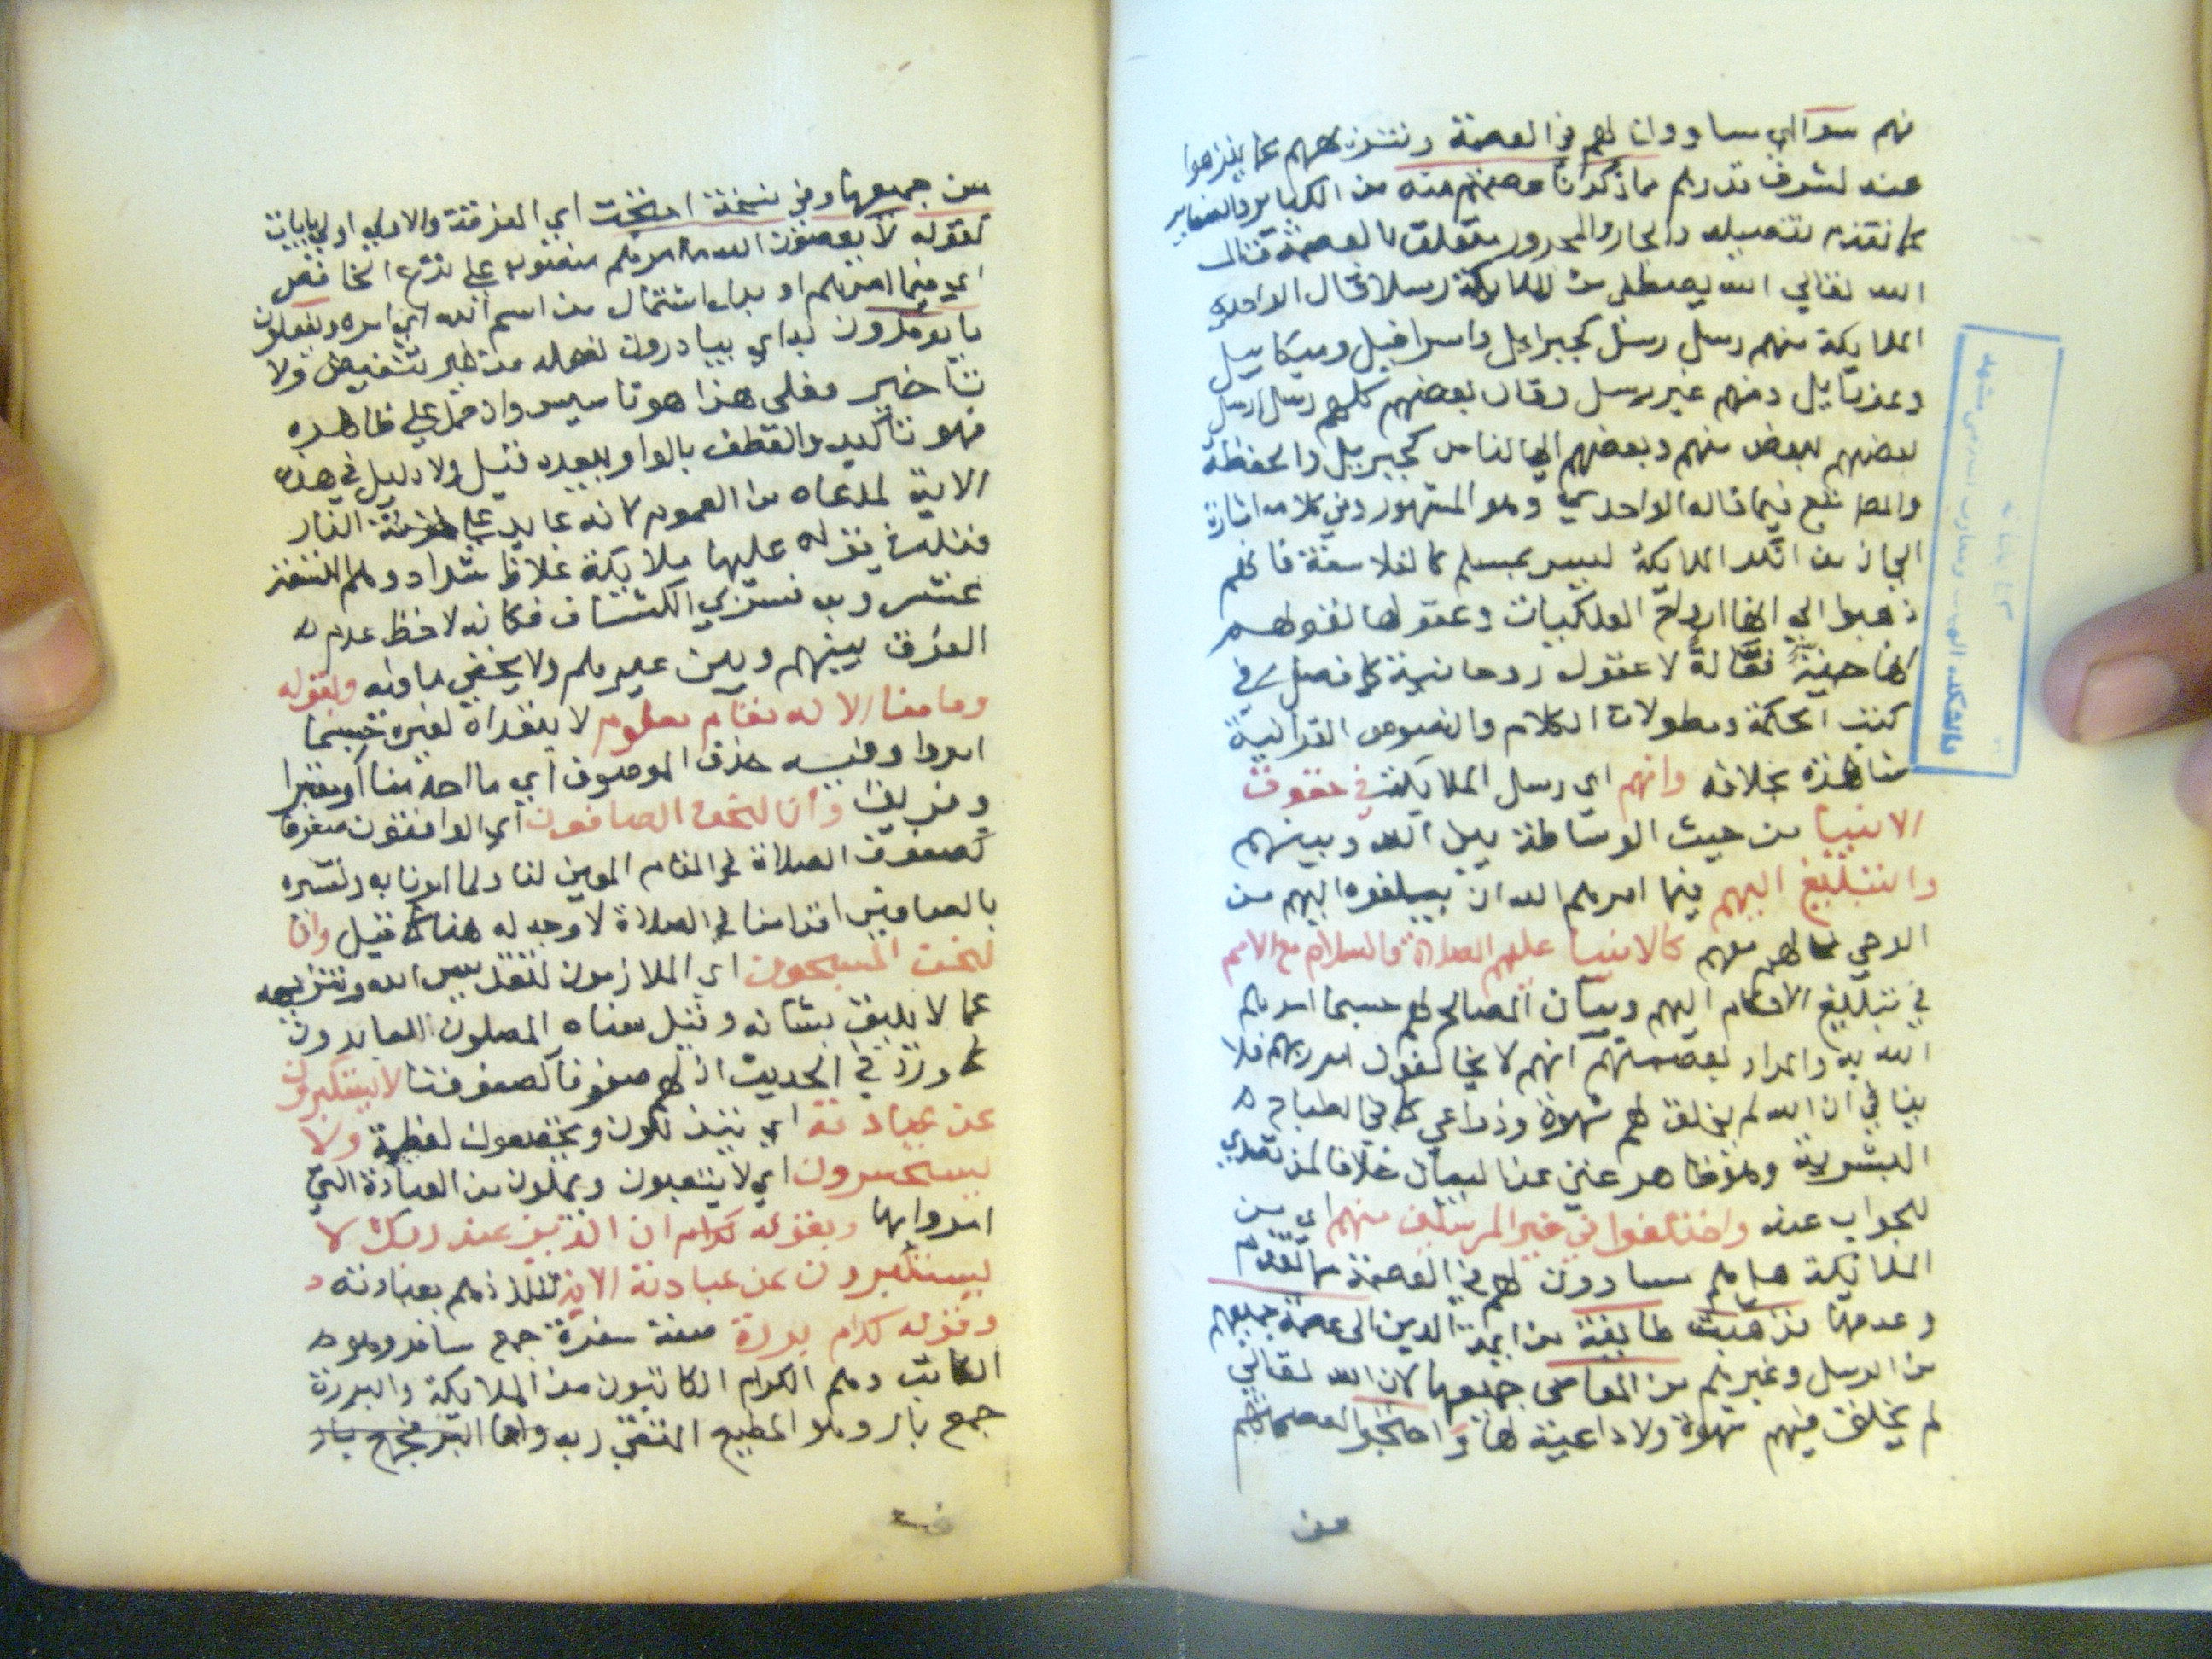 نهم سواي ساووانا لهم في العصمة وننزههم عما ينزهوا
عنه لشرف قدرهم مما ذكرنا عصمتهم منه من الكبائر والصغاير
كما تقدم تفصيله والجار والمجرور متعلق بالعصمة قال
الله تعالي الله يصطفي من الملايكة رسلا قال الواحدي
الملايكة منهم رسل كجبرايل واسرافيل وميكاييل
وعزرايل ومنهم غير رسل وقال بعضهم كلهم رسل ارسل
بعضهم لبعض منهم وبعضهم الي الناس كجبريل والحفظة
فيما قاله الواحدي وهو المشهور وفي كلامه اشارة
الي ان من انكر الملايكة ليس بمسلم كالفلاسفة فانهم
ذهبوا الي انها ارواح الفلكيات وعقولها نفوسهم
فعالة لا عقول روحانية كما فصل في
كتب الحكمة ومطولات الكلام والنصوص القرانية
مناهذة بخلافه وانهم اي رسل الملايكة في حقوق
الانبيا من حيث الوساطة بين الله وبينهم
والتبليغ اليهم فيما امرهم الله ان يبلغوه اليهم من
الوحي معهم كالانبيا عليهم الصلاة والسلام مع الامم
في تبليغ الاحكام اليهم وبيان المصالح لهم حسبما امرهم
الله به والمراد بعصمتهم انهم لا يخالفون امر ربهم فلا
ينافي ان الله لم يخلق لهم شهوة ودواعي كما في الطباع
البشرية وهو ظاهر غني عن البيان خلافا لمن تصدي
للجواب عنه واختلفوا في غير المرسلين منهم اي من
الملايكة هل هم مساوون لهم في العصمة كما تقدم
وعدمها فذهبت طايفة من ايمة الدين الي عصمة جميعهم
من الرسل وغيرهم من المعاصي جميعها لان الله تعالي
لم يخلق فيهم شهوة ولا داعية لها واحتجوا لعصمتهم
عن
عن جميعها وفي نسخة احتجت اي الفرقة والاولي اولي بايات
كقوله لا يعصون الله ما امرهم منصوب علي نزع الخافض
اي فيما امرهم او بدل اشتمال من اسم الله اي امره ويفعلون
ما يومرون به اي يبادرون لفعله من غير تنقيص ولا
تاخير فعلي هذا هو تاسيس وان حمل علي ظاهره
فهو تاكيد والعطف بالواو يبعده قيل ولا دليل في هذه
الاية لمدعاه من العموم لانه عايد علي خزنة النار
فقط في قوله عليها ملايكة غلاظ شداد وهم التسعة
عشر وبه فسر في الكشاف فكانه لاحظ عدم
الفرق بينهم وبين غيرهم ولا يخفي ما فيه وبقوله
وما منا الا له مقام معلوم لا يتعداه لغيره حسبما
امروا وفيه حذف الموصوف اي ما احد منا او فقيرا
وفريقا وانا لنحن الصافون اي الواقفون صفوفا
كصفوف الصلاة في المقام المعين لنا ولما امرنا به وتفسيره
بالصافين اقدامنا في الصلاة لا وجه له هنا كما قيل وانا
لنحن المسبحون اي الملازمون لتقديس الله وتنزيهه
عما لا يليق بشانه وقيل معناه المصلون العابدون
كما ورد في الحديث ان لهم صفوفا كصفوفنا لا يستكبرون
عن عبادته اي يتذللون ويخضعون لعظمته ولا
يستحسرون اي لا يتعبون ويملون من العبادة التي
امروا بها وبقوله ان الذين عند ربك لا
يستكبرون عن عبادته الاية لتلذذهم بعبادته
وقوله كرام بررة صفة سفرة جمع سافر وهو
الكاتب وهم الكرام الكاتبون من الملايكة والبررة
جمع بار وهو المطيع المتقي ربه واما البر فجمع بار